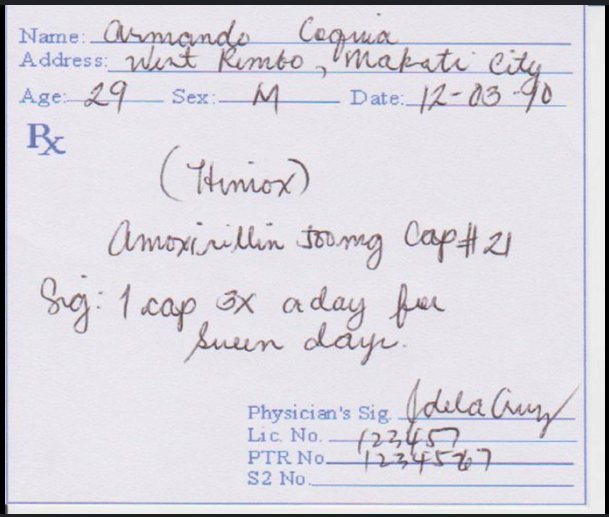 Name: Armando Coquia
Address: West Rembo, Makati City
Age: 29 Sex: M Date: 12-03-90
Rx
(Himox)
Amoxicillin 500mg Cap #21
Sig: 1 cap 3x a day for
seven days.
Physician's Sig. JdelaCruz
Lic. No. 123457
PTR No. 1234567
S2 No.